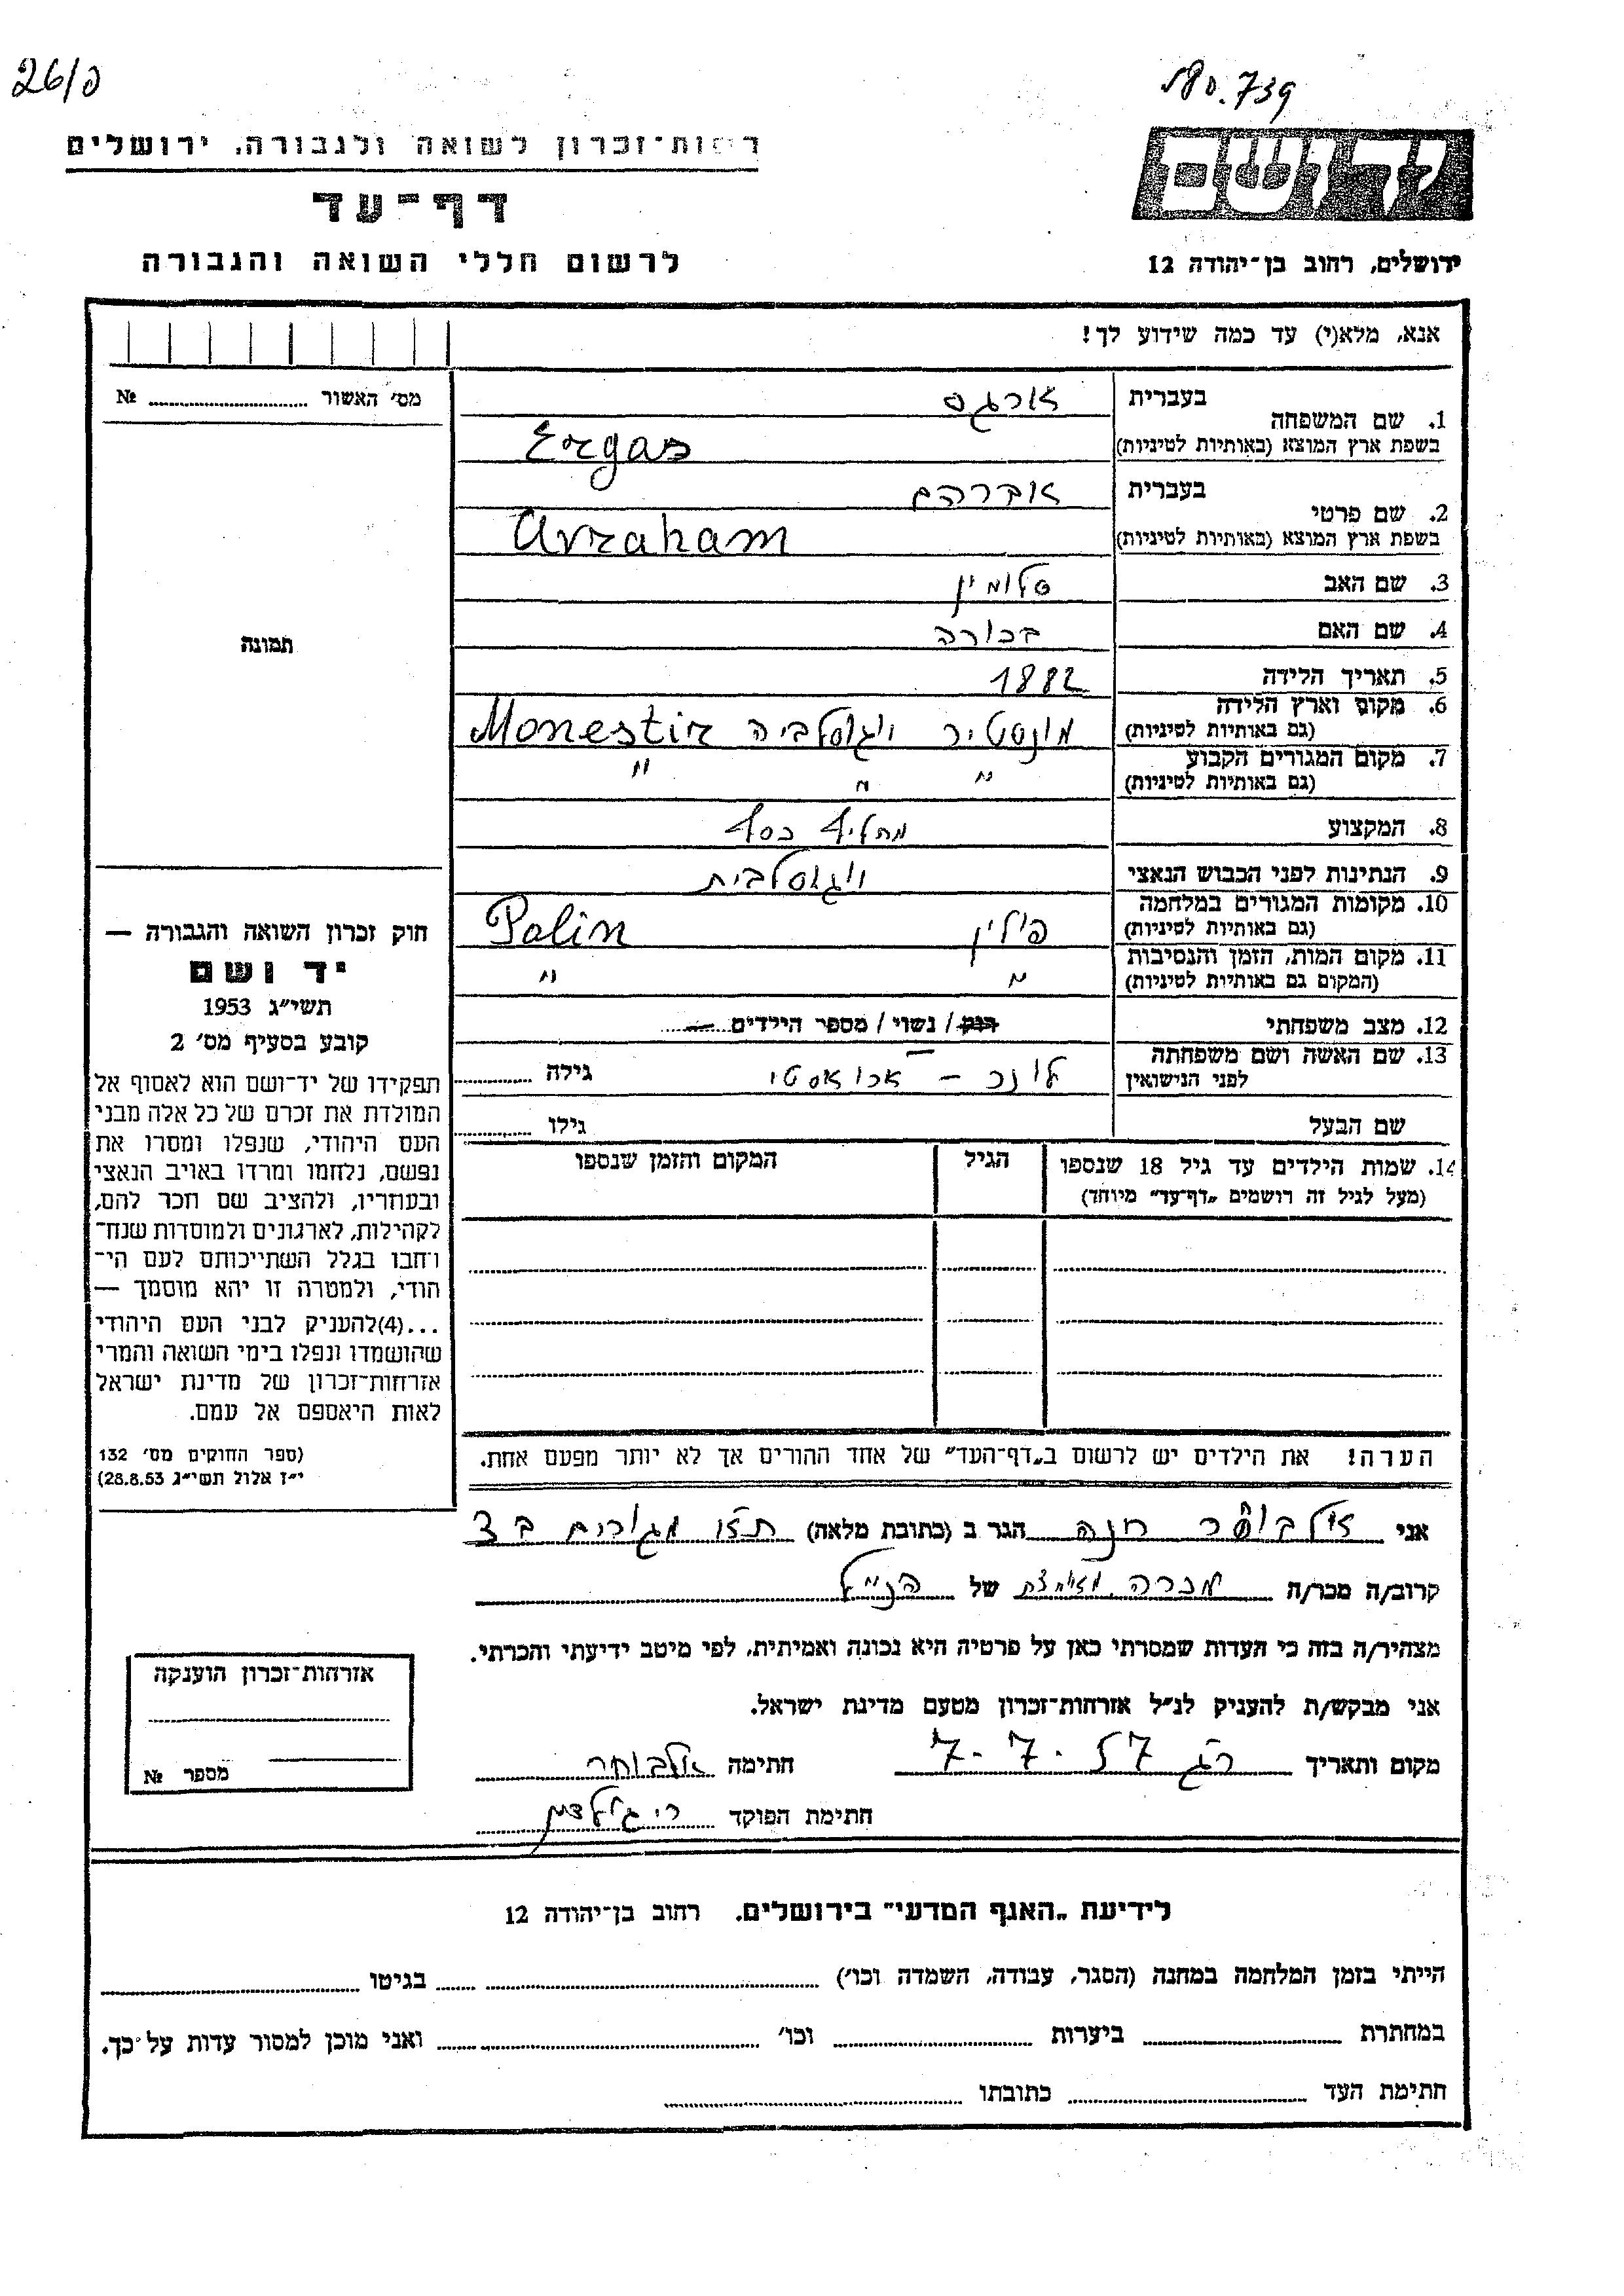 26/פ
739
רשות־זכרון לשואה ולגבורה, ירושלים
דף־עד
לרשום חללי השואה והגבורה
יד ושם
ירושלים, רחוב בן־יהודה 12
אנא, מלא(י) עד כמה שידוע לך!
מס׳ האשור № ..........
1. שם המשפחה
בעברית ארגס
בשפת ארץ המוצא (באותיות לטיניות) Ergas
2. שם פרטי
בעברית אברהם
בשפת ארץ המוצא (באותיות לטיניות) Avraham
3. שם האב סלומין
4. שם האם בכורה
5. תאריך הלידה 1882
6. מקום וארץ הלידה מונסטיר יוגוסלביה Monestir
(גם באותיות לטיניות)
7. מקום המגורים הקבוע " " "
(גם באותיות לטיניות)
8. המקצוע מחליף כסף
9. הנתינות לפני הכבוש הנאצי יוגוסלבית
10. מקומות המגורים במלחמה פולין Polin
(גם באותיות לטיניות)
11. מקום המות, הזמן והנסיבות " "
(המקום גם באותיות לטיניות)
12. מצב משפחתי רווק / נשוי / מספר הילדים —
13. שם האשה ושם משפחתה לונה – ארואסטי גילה ..........
לפני הנישואין
שם הבעל גילו ..........
14. שמות הילדים עד גיל 18 שנספו הגיל המקום והזמן שנספו
(מעל לגיל זה רושמים „דף־עד" מיוחד)
תמונה
חוק זכרון השואה והגבורה —
יד ושם
תשי״ג 1953
קובע בסעיף מס׳ 2
תפקידו של יד־ושם הוא לאסוף אל
המולדת את זכרם של כל אלה מבני
העם היהודי, שנפלו ומסרו את
נפשם, נלחמו ומרדו באויב הנאצי
ובעוזריו, ולהציב שם וזכר להם,
לקהילות, לארגונים ולמוסדות שנח־
רבו בגלל השתייכותם לעם הי־
הודי, ולמטרה זו יהא מוסמך —
...(4)להעניק לבני העם היהודי
שהושמדו ונפלו בימי השואה והמרי
אזרחות־זכרון של מדינת ישראל
לאות היאספם אל עמם.
(ספר החוקים מס׳ 132
י״ז אלול תשי״ג 28.8.53)
הערה! את הילדים יש לרשום ב„דף־העד" של אחד ההורים אך לא יותר מפעם אחת.
אני אלבוחר חנה הגר ב (כתובת מלאה)
קרוב/ה מכר/ה מכרה של הנ״ל
מצהיר/ה בזה כי העדות שמסרתי כאן על פרטיה היא נכונה ואמיתית, לפי מיטב ידיעתי והכרתי.
אני מבקש/ת להעניק לנ״ל אזרחות־זכרון מטעם מדינת ישראל.
מקום ותאריך רג 7.7.57 חתימה אלבוחר
חתימת הפוקד
אזרחות־זכרון הוענקה
מספר №
לידיעת „האגף המדעי" בירושלים, רחוב בן־יהודה 12
הייתי בזמן המלחמה במחנה (הסגר, עבודה, השמדה וכו׳) .......... בגיטו ..........
במחתרת .......... ביערות .......... וכו׳ .......... ואני מוכן למסור עדות על כך.
חתימת העד .......... כתובתו ..........